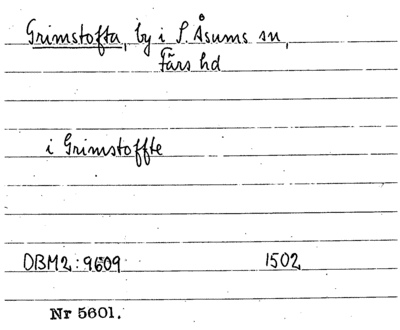 Grimstofta, by i S. Åsums sn,
Färs hd
i Grimstoffte
DBM2:9609 1502
Nr 5601.